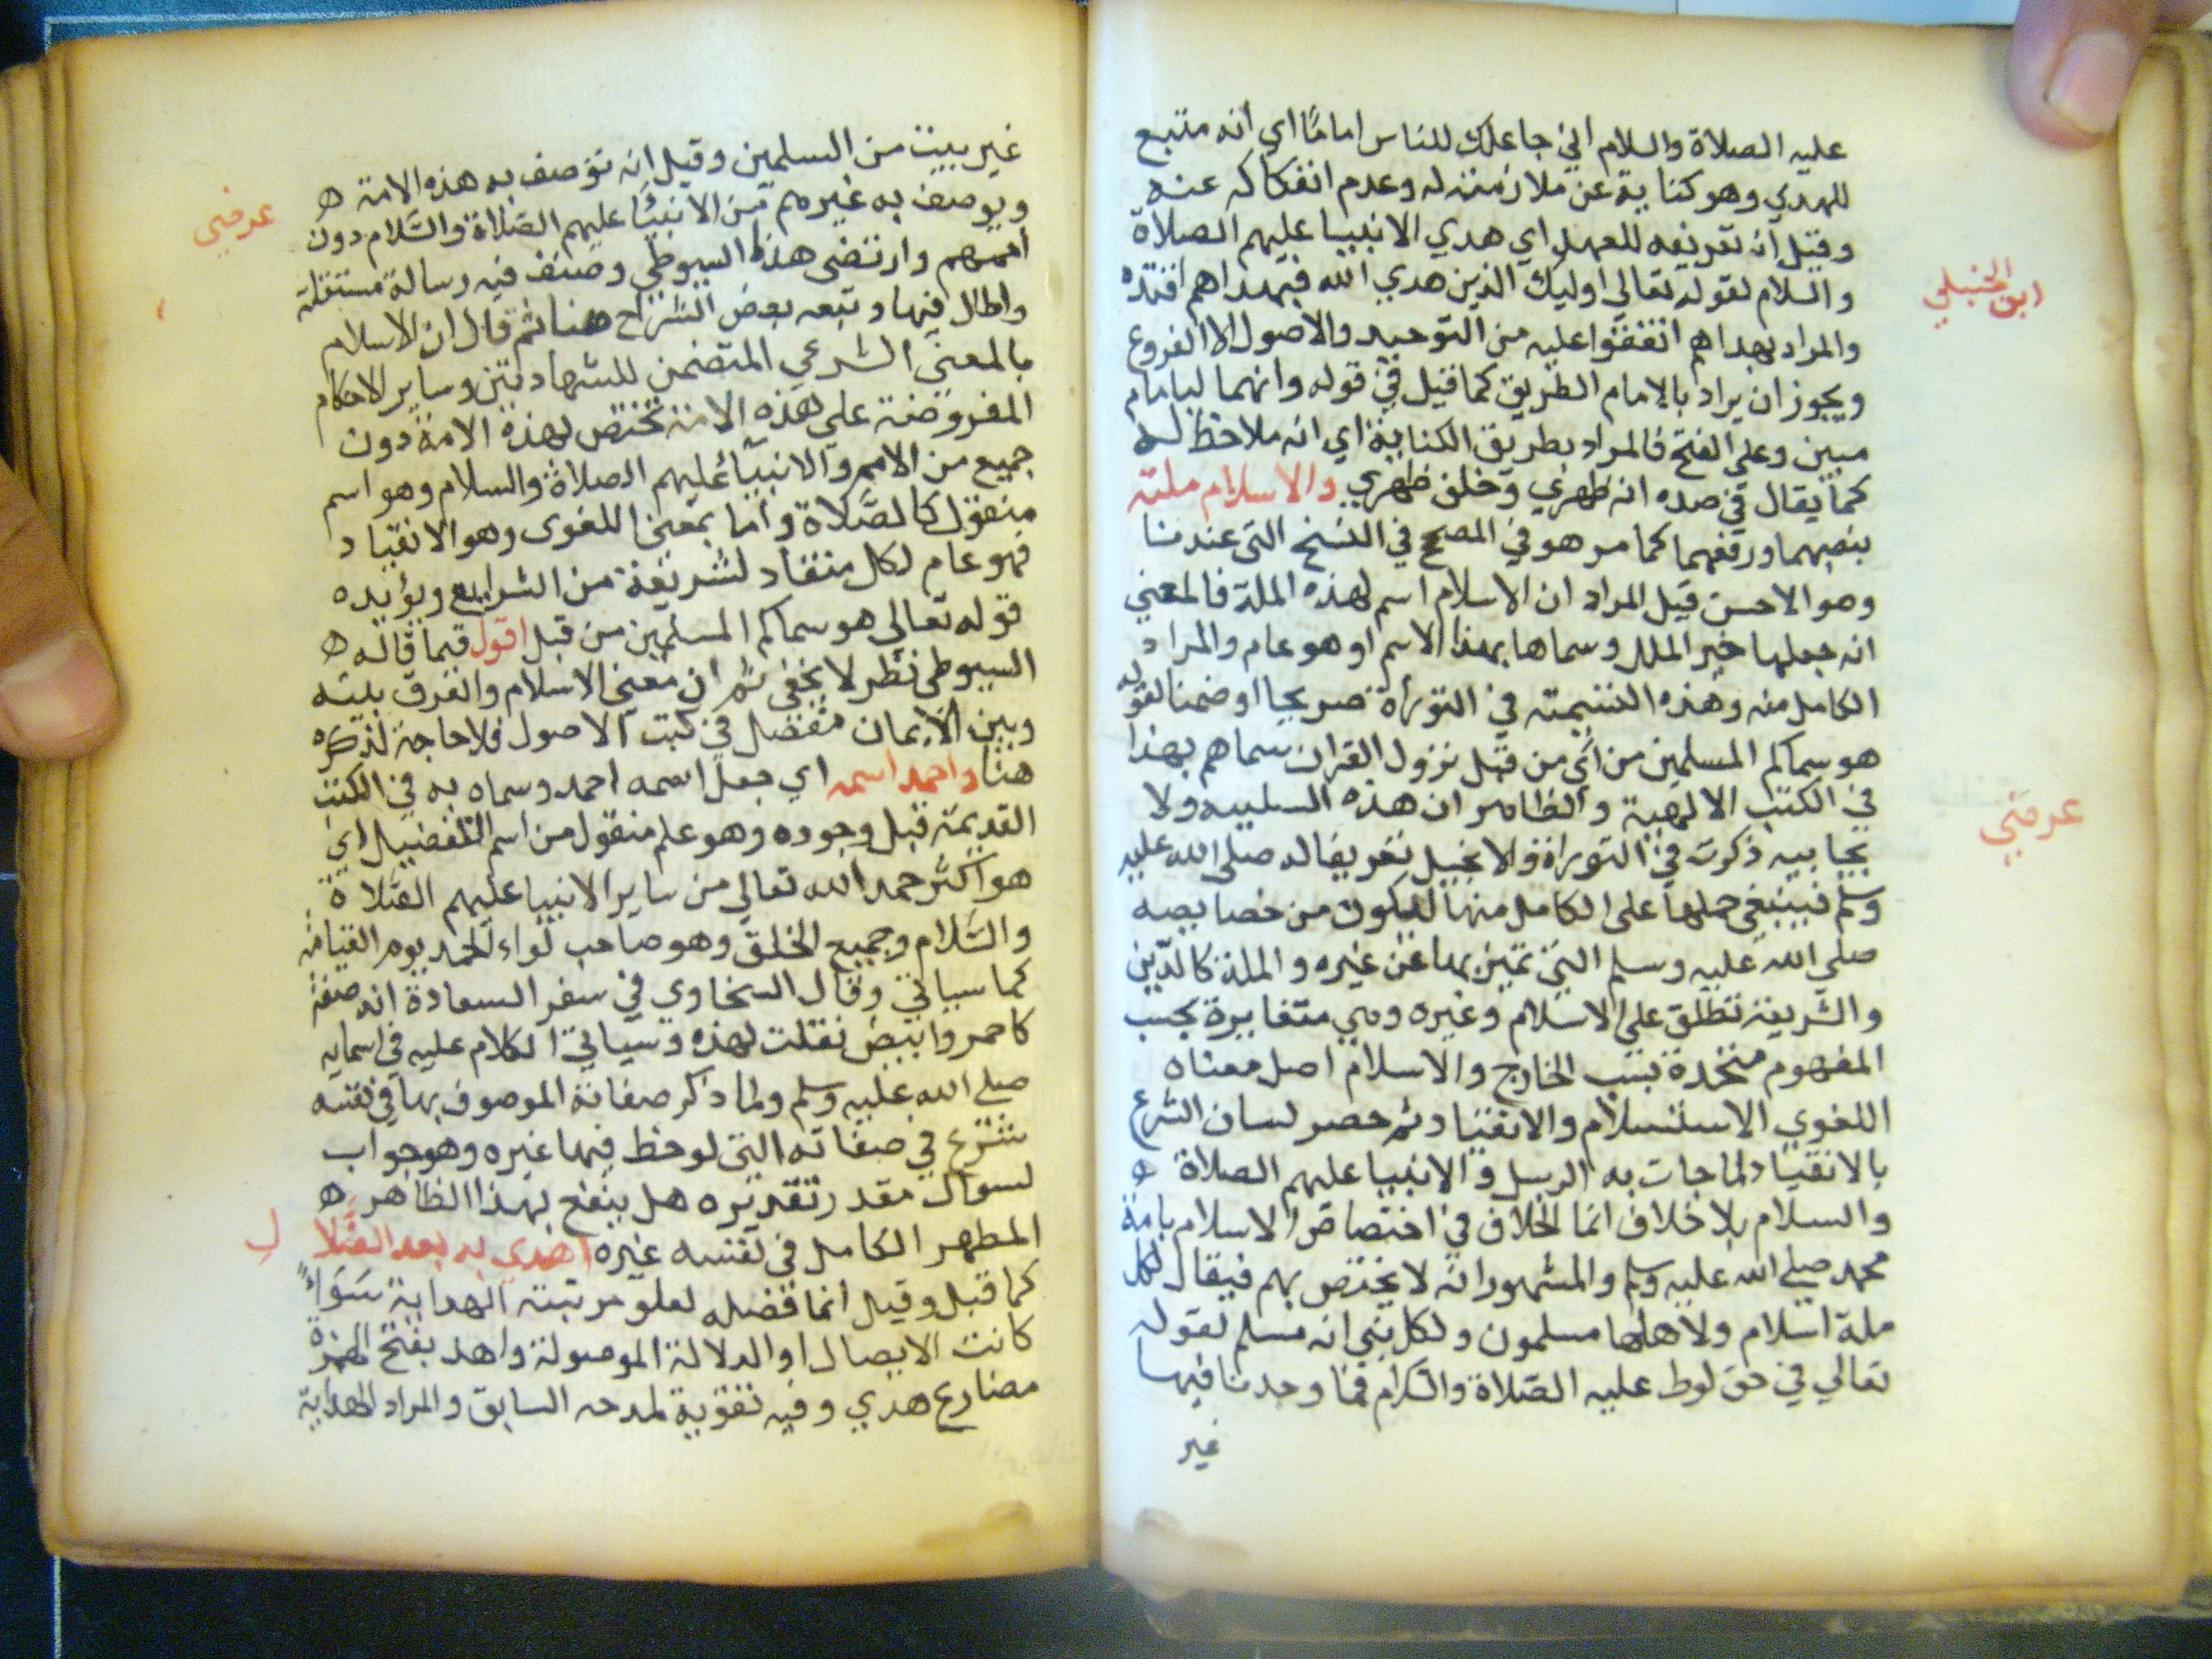 عليه الصلاة والسلام اني جاعلك للناس اماما اي انه متبع
للهدي وهو كناية عن ملازمته له وعدم انفكاكه عنه
وقيل انه تعريفه للعهد اي هدي الانبيا عليهم الصلاة
والسلام لقوله تعالي اوليك الذين هدي الله فبهداهم اقتده
والمراد بهداهم اتفقوا عليه من التوحيد والاصول لا الفروع
ويجوز ان يراد بالامام الطريق كما قيل في قوله وانهما لبامام
مبين وعلي الفتح فالمراد بطريق الكناية اي انه ملاحظ له
كما يقال في صده انه ظهري وخلف ظهري والاسلام ملته
بنصبهما ورفعهما كما مر هو في المصحح في النسخ التي عندنا
وهو الاحسن قيل المراد ان الاسلام اسم لهذه الملة فالمعني
انه جعلها خير الملل وسماها بهذا الاسم او هو عام والمراد
الكامل منه وهذه التسمية في التوراة صريحا او ضمنا لقوله
هو سماكم المسلمين من اي من قبل نزول القران سماهم بهذا
في الكتب الالهية والظاهر ان هذه السلبيه ولا
يجابيه ذكرت في التوراة والانجيل تعريفا له صلي الله عليه
وسلم فينبغي حملها علي الكامل منها ليكون من خصايصه
صلي الله عليه وسلم التي تميز بها عن غيره والملة كالدين
والشريعة تطلق علي الاسلام وغيره وهي متغايرة بحسب
المفهوم متحدة بسب الخارج والاسلام اصل معناه
اللغوي الاستسلام والانقياد ثم حصر لسان الشرع
بالانقياد لما جات به الرسل والانبيا عليهم الصلاة ه
والسلام بلا خلاف انما الخلاف في اختصاص الاسلام بامة
محمد صلي الله عليه وسلم والمشهور انه لا يختص بهم فيقال لكل
ملة اسلام ولاهلها مسلمون ولكل نبي انه مسلم لقوله
تعالي في حق لوط عليه الصلاة والسلام فما وجدنا فيها
غير
ابن الحنبلي
عرضي
غير بيت من المسلمين وقيل انه توصف به هذه الامة ه
ويوصف به غيرهم من الانبيا عليهم الصلاة والسلام دون
اممهم وارتضى هذا السيوطي وصنف فيه رسالة مستقلة
واطال فيها وتبعه بعض الشراح هنا ثم قال ان الاسلام
بالمعني الشرعي المتضمن للشهادتين وساير الاحكام
المفروضة علي هذه الامة تختص لهذه الامة دون
جميع من الامم والانبيا عليهم الصلاة والسلام وهو اسم
منقول كالصلاة واما بمعني اللغوى وهو الانقياد
فهو عام لكل منقاد لشريعة من الشرايع ويؤيده
قوله تعالي هو سماكم المسلمين من قبل اقول فيما قاله ه
السيوطى نظر لا يخفى ثم ان معني الاسلام والفرق بينه
وبين الايمان مفصل في كتب الاصول فلا حاجة لذكره
هنا واحمد اسمه اي جعل اسمه احمد وسماه به في الكتب
القديمة قبل وجوده وهو علم منقول من اسم التفضيل اي
هو اكثر حمد الله تعالي من ساير الانبيا عليهم الصلاة
والسلام وجميع الخلق وهو صاحب لواء الحمد يوم القيامة
كما سياتي وقال السخاوي في سفر السعادة انه صفة
كاحمر وابيض نقلت لهذه وسياتي الكلام عليه في اسمايه
صلي الله عليه وسلم ولما ذكر صفاته الموصوف بها في نفسه
شرع في صفاته التي لوحظ فيها غيره وهو جواب
لسوال مقدر تقديره هل ينفع بهذا الظاهر ه
المطهر الكامل في نفسه غيره اهدي به بعد الضلال
كما قيل وقيل انما فضله لعلو مرتبته الهداية سواء
كانت الايصال او الدلالة الموصولة واهد بفتح الهمزة
مضارع هدي وفيه تقوية لمدحه السابق والمراد الهداية
عرضي